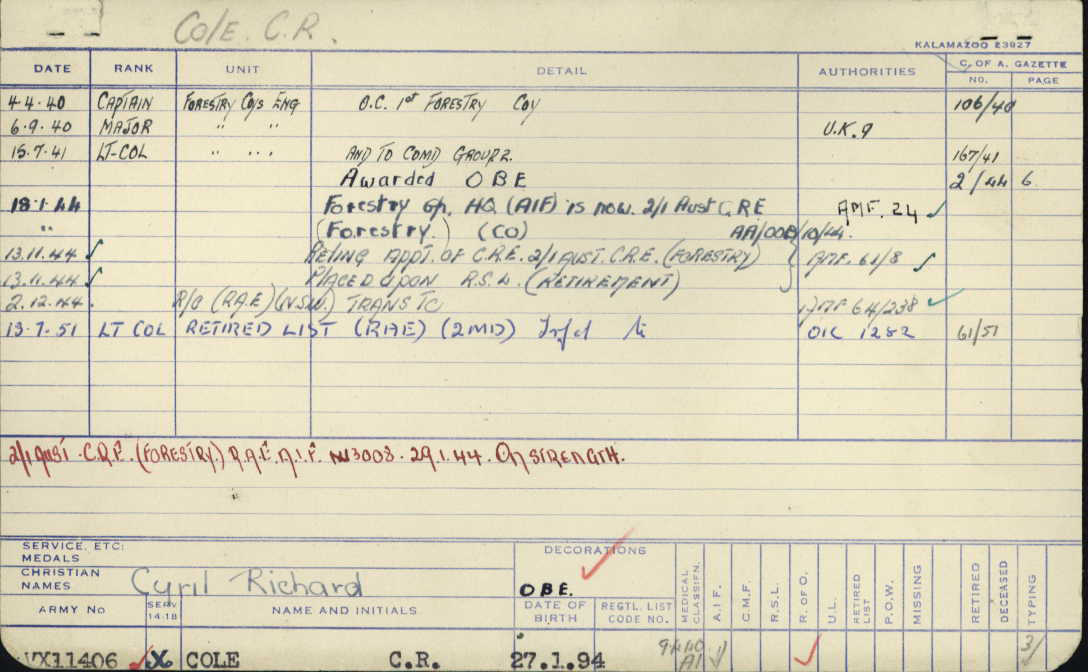 Cole. C.R.
KALAMAZOO E3927
DATE RANK UNIT DETAIL AUTHORITIES C. OF A. GAZETTE
NO. PAGE
4·4·40 CAPTAIN FORESTRY COYS ENG O.C. 1st FORESTRY COY 106/40
6·9·40 MAJOR " " U.K. 9
15·7·41 LT-COL " " AND TO COMD GROUP 2. 167/41
Awarded OBE 2/44 6
18·1·44 Forestry Gp. HQ (AIF) is now 2/1 Aust C.R.E AMF. 24
" (Forestry.) (CO) AA/OOB/10/44.
13.11.44 RELINQ APPT. OF C.R.E. 2/1 AUST. C.R.E. (FORESTRY) AMF. 61/8
13.11.44 PLACED UPON R.S.L. (RETIREMENT)
2.12.44. R/O (RAE) (N.S.W.) TRANS TO AMF 64/238
13·7·51 LT COL RETIRED LIST (RAE) (2MD) Trfd to OIC 1282 61/51
2/1 AUST. C.R.E. (FORESTRY) R.A.E. A.I.F. 3003 · 29.1.44. ON STRENGTH.
SERVICE, ETC:
MEDALS
DECORATIONS
CHRISTIAN
NAMES Cyril Richard
OBE.
ARMY No SERV 14-18 NAME AND INITIALS
DATE OF BIRTH REGTL. LIST CODE NO.
MEDICAL CLASSIFN. A.I.F. C.M.F. R.S.L. R. OF O. U.L. RETIRED LIST P.O.W. MISSING RETIRED DECEASED TYPING
VX11406 X COLE C.R. 27.1.94 A1 3/